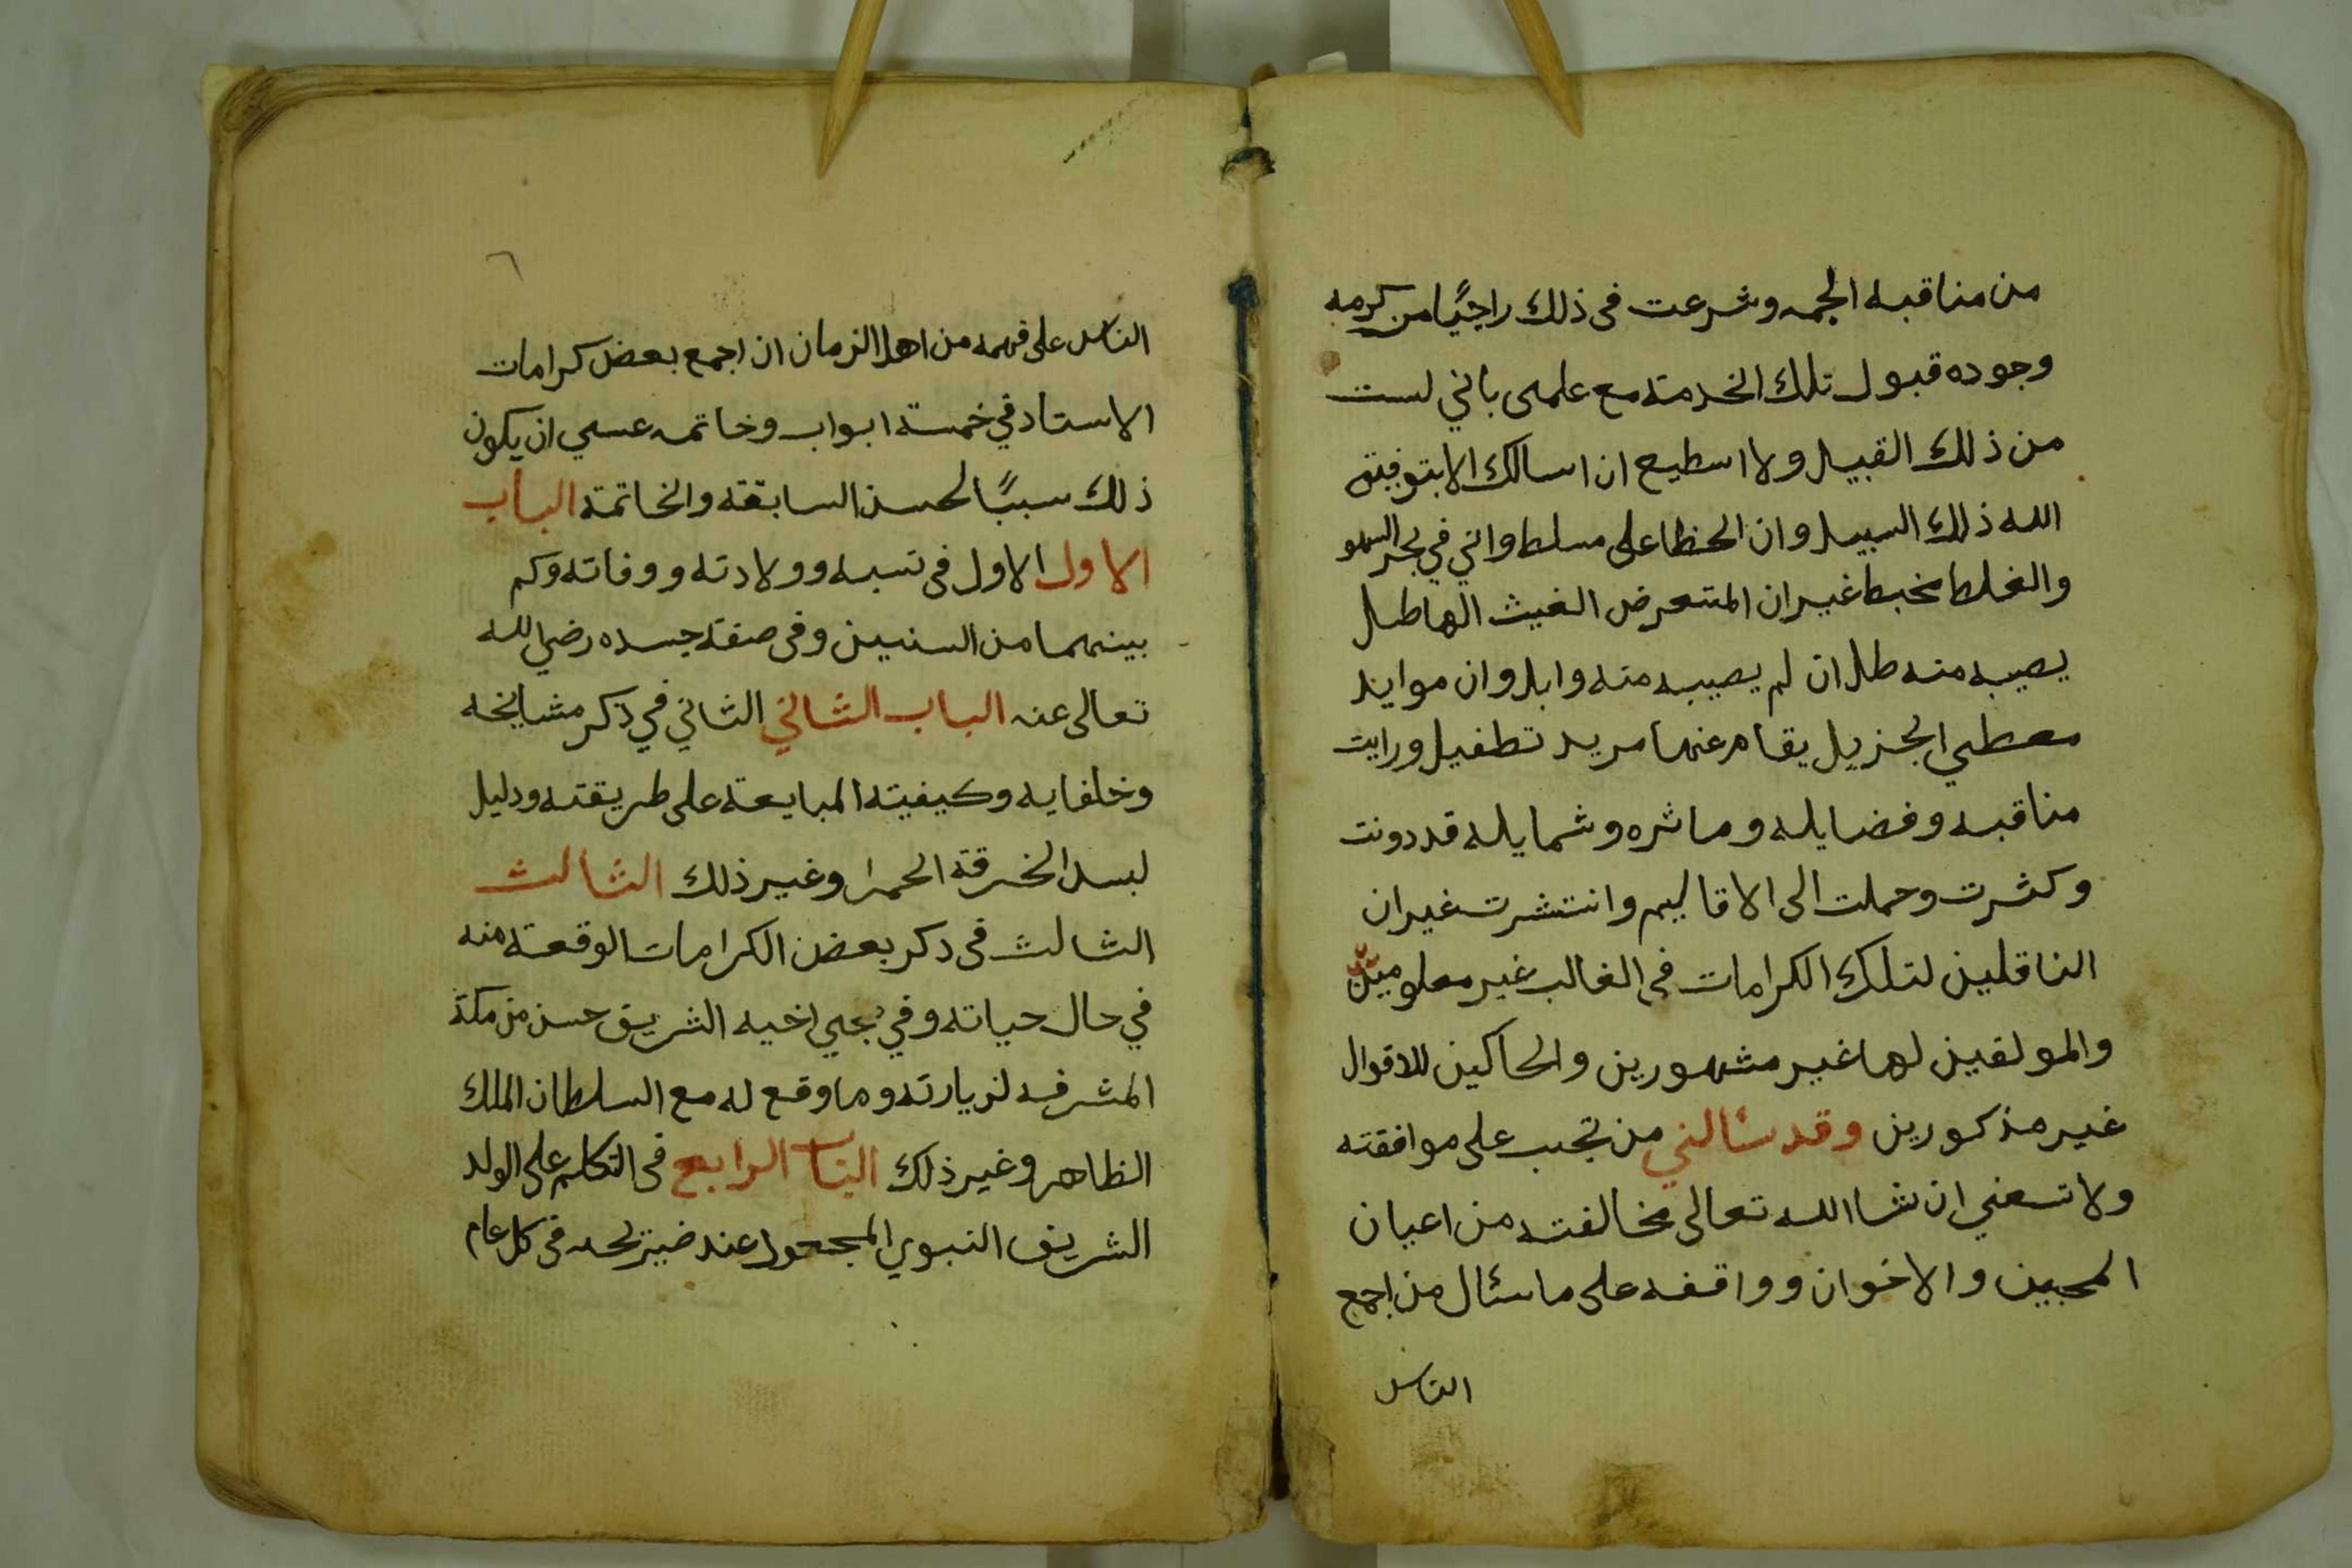 من مناقبه الجمه وشرعت فى ذلك راجيًا من كرمه
وجوده قبول تلك الخدمته مع علمى باني لست
من ذلك القبيل ولا اسطيع ان اسالك الابتوفيق
الله ذلك السبيل وان الخطا على مسلط واني في بحر السهو
والغلط مخبط غير ان المتعرض الغيث الهاطل
يصيبه منه طل ان لم يصيبه منه وابل وان موايد
معطي الجزيل يقام عنها مريد تطفيل ورايت
مناقبه وفضايله وماثره وشمايله قد دونت
وكثرت وحملت الى الاقاليم وانتشرت غير ان
الناقلين لتلك الكرامات فى الغالب غير معلومين
والمولفين لها غير مشهورين والحاكين للاقوال
غير مذكورين وقد سئالني من تجب على موافقته
ولا تسعني ان شا الله تعالى مخالفته من اعيان
المحبين والاخوان وواقفه على ما سئال من اجمع
الناس
٦
الناس على فهمه من اهل الزمان ان اجمع بعض كرامات
الاستاد في خمسة ابواب وخاتمه عسي ان يكون
ذلك سببًا لحسن السابقته والخاتمتة الباب
الاول الاول فى نسبه وولادته ووفاته وكم
بينهما من السنين وفى صفة جسده رضي الله
تعالى عنه الباب الثاني الثاني في ذكر مشايخه
وخلفايه وكيفيته المبايعة على طريقته ودليل
لبس الخرقة الحمرا وغير ذلك الثالث
الثالث فى دكر بعض الكرامات الوقعته منه
في حال حياته وفي مجي اخيه الشريف حسن من مكة
المشرفه لزيارته وما وقع له مع السلطان الملك
الظاهر وغير ذلك الباب الرابع فى التكلم على الولد
الشريف النبوي المجعول عند ضريحه فى كل عام